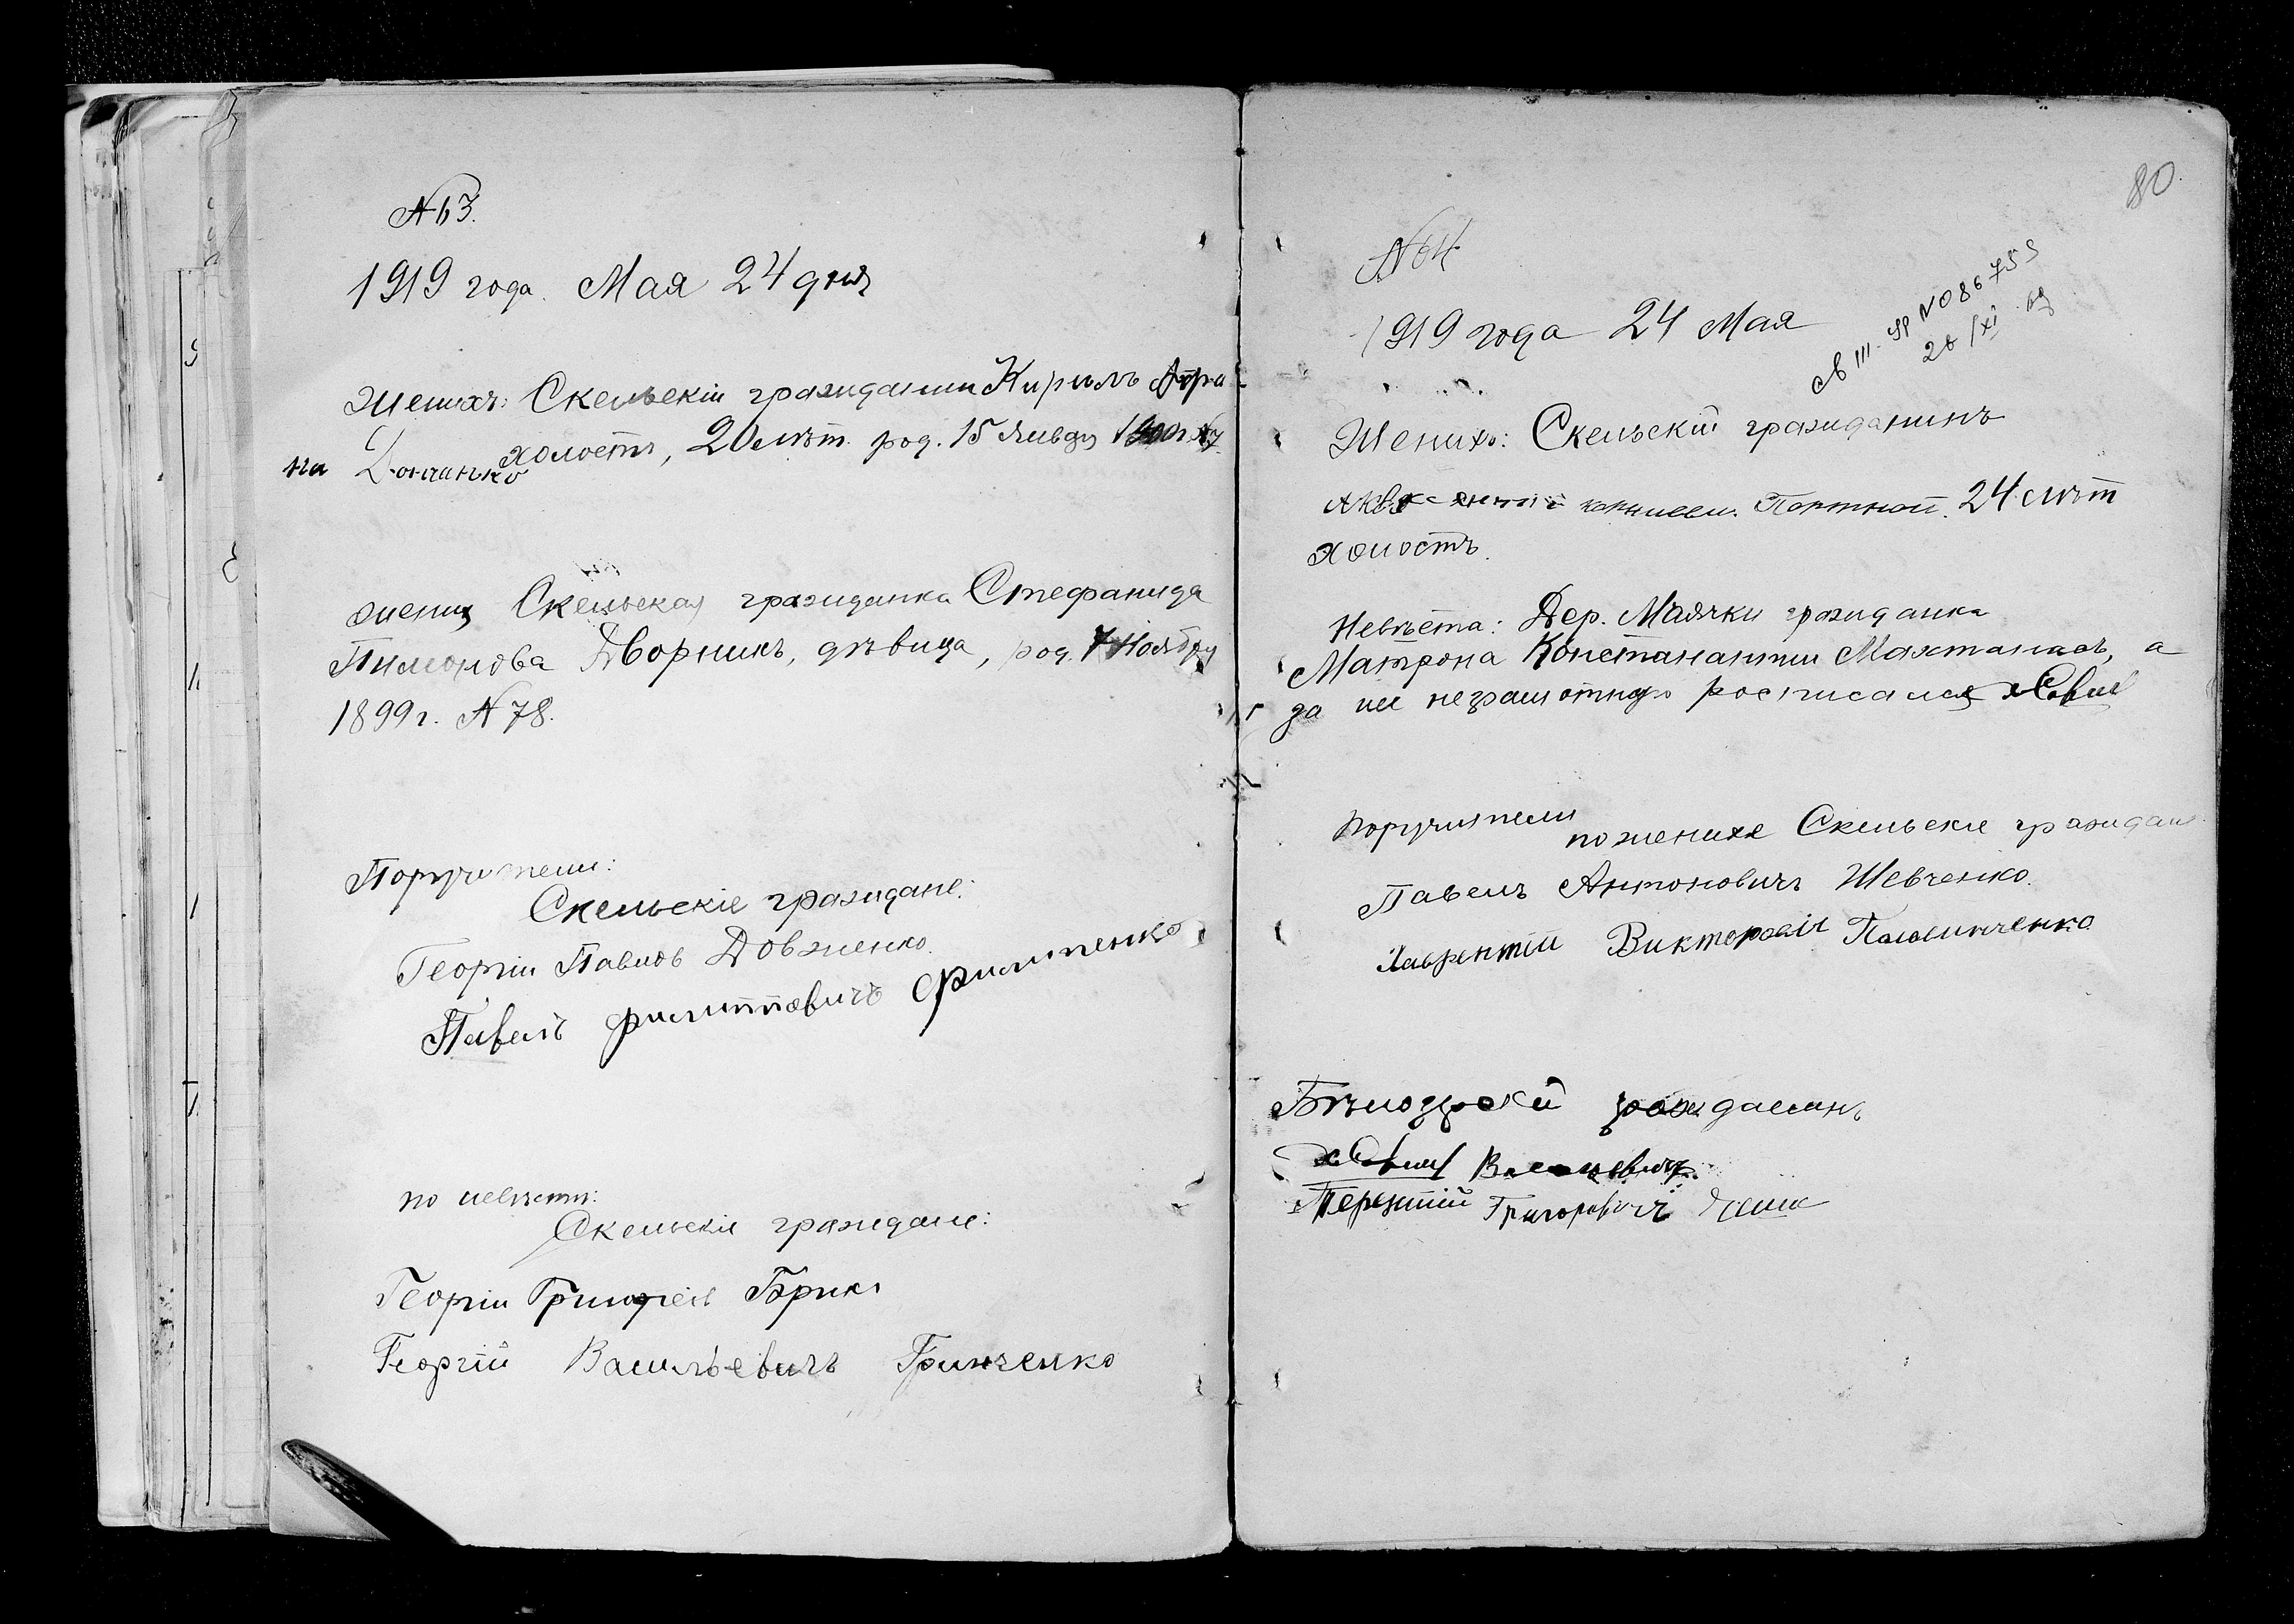 № 63.
1919 года. Мая 24 дня
Женихъ: Скельскій гражданин Кирилъ
холостъ, 20 лѣт. род. 15 Января
Скельская гражданка Стефанида
Тимонова Дворникъ, дѣвица, род. 7 Ноября
1899 г. № 78.
Поручители:
Скельскіе граждане:
Георгій Павловъ Довженко.
Павелъ Филипповичъ Филипенко
по невѣстѣ:
Скельскіе граждане:
Георгій Брикъ
Георгій Васильевичъ Гринченко
80
№ 64
1919 года 24 Мая
св III-
№ 086755
28/XI
Женихъ: Скельскій гражданинъ
Портной. 24 лѣт
холостъ.
Невѣста: Дер. Маячки гражданка
Матрона а
за неграмотную росписался
поручители
по женихе Скельскіе граждане
Павелъ Антоновичъ Шевченко.
Лаврентій Викторовичъ
гражданинъ
Терентій Григоровичъ